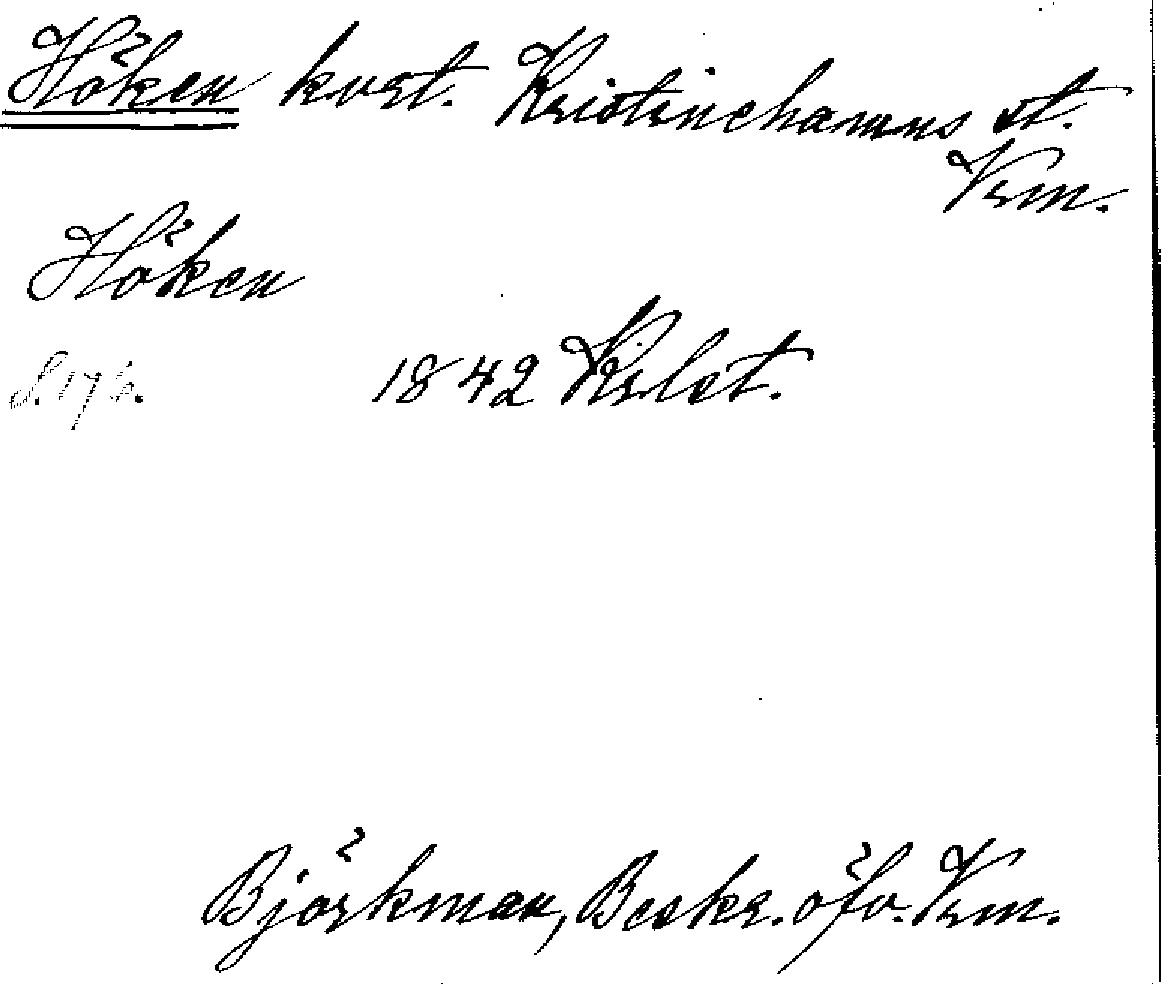 Höken kvrt. Kristinehamns st.
Vrm.
Höken
S. 176. 1842 Krlst.
Björkman, Beskr. öfv. Vrm.